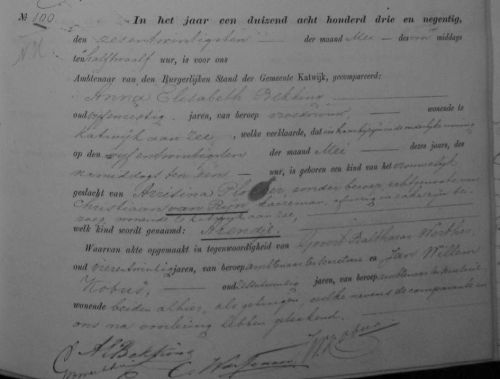 № 100. In het jaar een duizend acht honderd drie en negentig,
den zesentwintigsten der maand Mei des voormiddags
ten half twaalf uur, is voor ons
Ambtenaar van den Burgerlijken Stand der Gemeente Katwijk, gecompareerd:
Anna Elisabeth Bekking
oud jaren, van beroep vroedvrouw, wonende te
Katwijk aan Zee, welke verklaarde, dat in haar bijzijn in de ouderlijke woning
op den vijfentwintigsten der maand Mei dezes jaars, des
namiddags ten een uur, is geboren een kind van het vrouwelijk
geslacht van Arzidina zonder beroep, echtgenoote van
Christiaan van Rijn, zeereman, afwezig in zake zijn be-
roep, wonende te Katwijk aan Zee,
welk kind wordt genaamd: Arendje.
Waarvan akte opgemaakt in tegenwoordigheid van Govert Balthazar
oud jaren, van beroep ambtenaar ter secretarie en Jan Willem
oud jaren, van beroep ambtenaar ter secretarie
wonende beiden alhier, als getuigen, welke nevens de comparante en
ons na voorlezing hebben geteekend.
A E Bekking